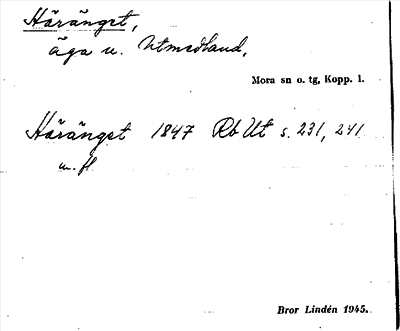 Häränget,
äga u. Utmedland,
Mora sn o. tg, Kopp. l.
Häränget 1847 Rb Ut s. 231, 241
m. fl.
Bror Lindén 1945.